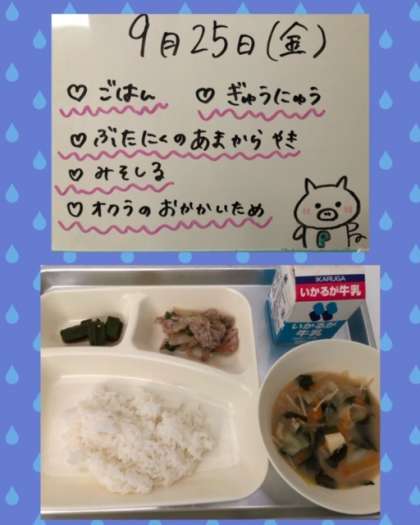 9月25日(金)
♡ ごはん ♡ ぎゅうにゅう
♡ ぶたにくのあまから やき
♡ みそしる
♡ オクラの おかかいため
IKARUGA
いかるが牛乳
いかるが
牛乳